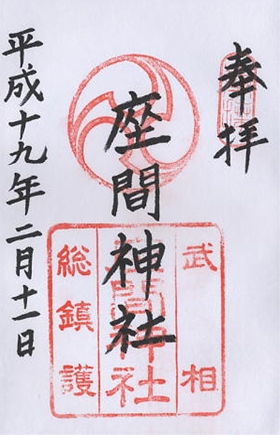 奉拝
武相
座間神社
座間神社
総鎮護
平成十九年二月十一日